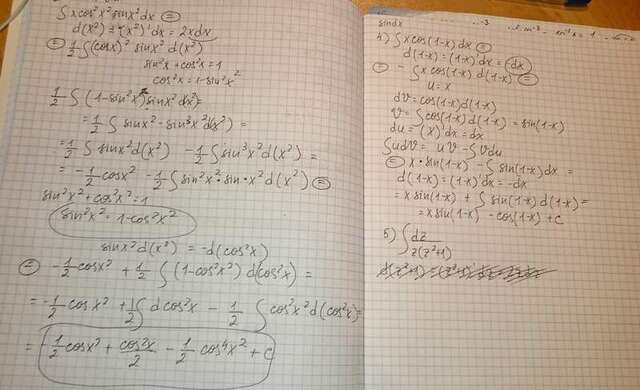 ∫xcos²x² sinx² dx ⊜
d(x²) = (x²)'dx = 2xdx
⊜ 1/2 ∫(cosx)² sinx² d(x²)
sin²x² + cos²x = 1
cos²x = 1-sin²x²
1/2 ∫ (1-sin²x²) sinx² dx² =
= 1/2 ∫ sinx² - sin³x² d(x²) =
= 1/2 ∫ sinx² d(x²) - 1/2 ∫ sin³x² d(x²) =
= -1/2 cosx² - 1/2 ∫ sin²x² · sin·x² d(x²) ⊜
sin²x² + cos²x² = 1
sin²x² = 1-cos²x²
sinx² d(x²) = -d(cos²x)
⊜ -1/2 cosx² + 1/2 ∫ (1-cos²x²) d(cos²x) =
= -1/2 cosx² + 1/2 ∫ dcos²x - 1/2 ∫ cos²x² d(cos²x) =
= -1/2 cosx² + cos²x/2 - 1/2 cos⁴x² + C
sindx
4) ∫xcos(1-x)dx ⊜
d(1-x) = (1-x)'dx = -dx
⊜ - ∫xcos(1-x) d(1-x) ⊜
u = x
dv = cos(1-x)d(1-x)
v = ∫cos(1-x)d(1-x) = sin(1-x)
du = (x)'dx = dx
∫udv = uv - ∫vdu
⊜ x·sin(1-x) - ∫sin(1-x)dx =
d(1-x) = (1-x)'dx = -dx
= xsin(1-x) + ∫sin(1-x)d(1-x) =
= xsin(1-x) - cos(1-x) + C
5) ∫ dz/z(z²+1)